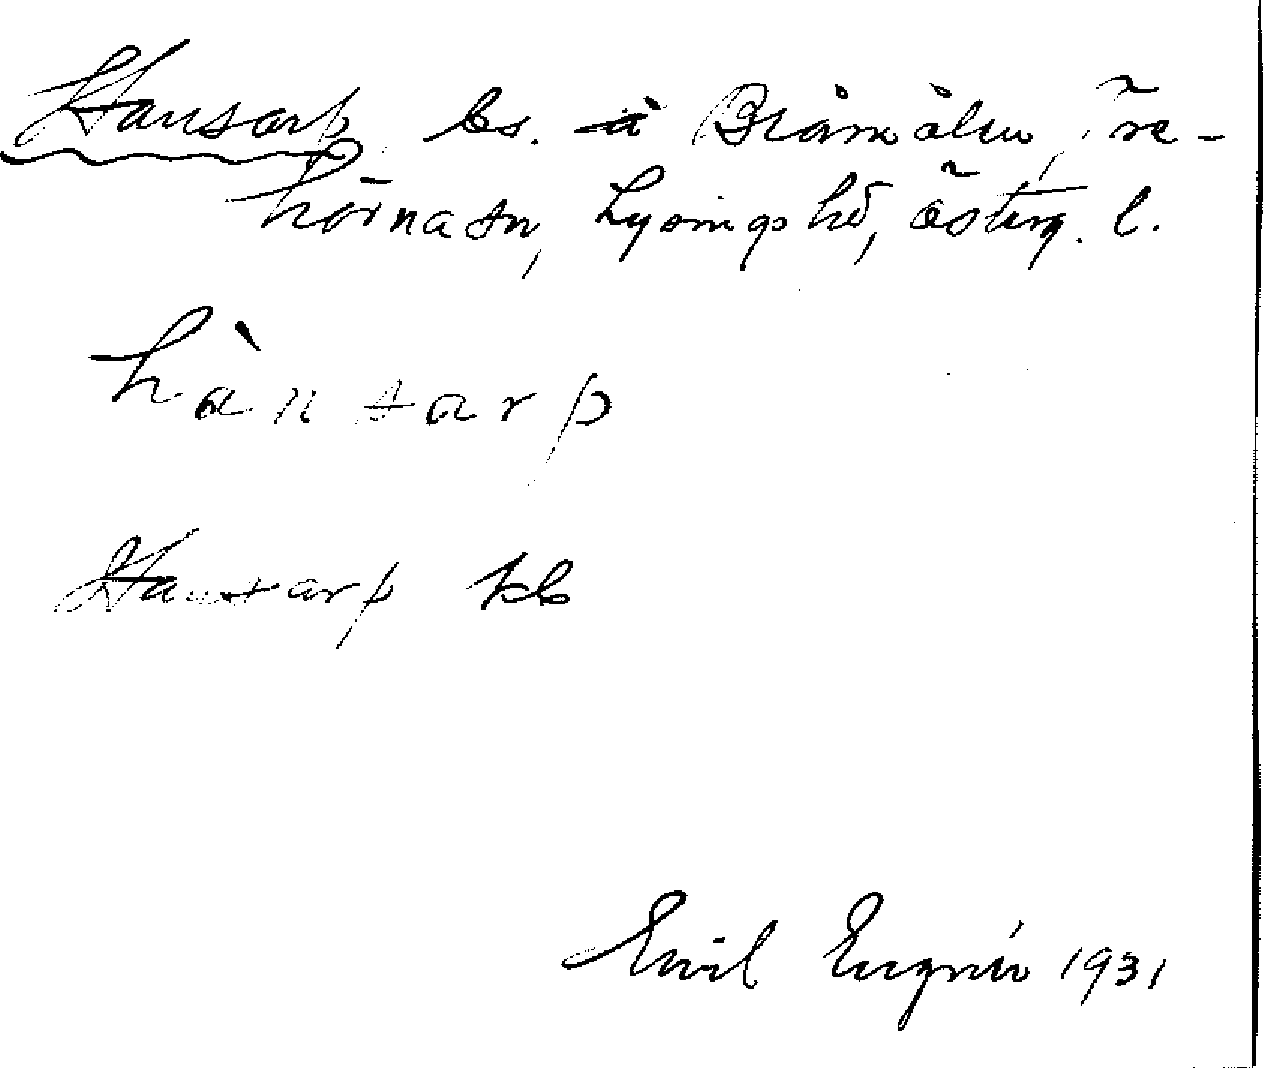 Hansarp bs. å Bråmålen, Tre-
hörna sn, Lysings hd, österg. l.
hànsarp
Hansarp kb
Emil Engnér 1931